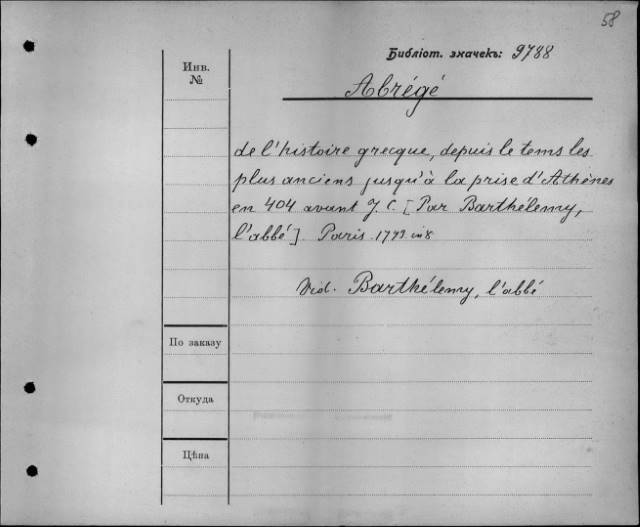 58
Библіот. значекъ: 9788
Инв.
№
Abrégé
de l'histoire grecque, depuis le tems les
plus anciens jusqu'à la prise d'Athènes
en 404 avant J. C. [Par Barthélemy,
l'abbé]. Paris. 1793 in 8
Vid. Barthélemy, l'abbé
По заказу
Откуда
Цѣна